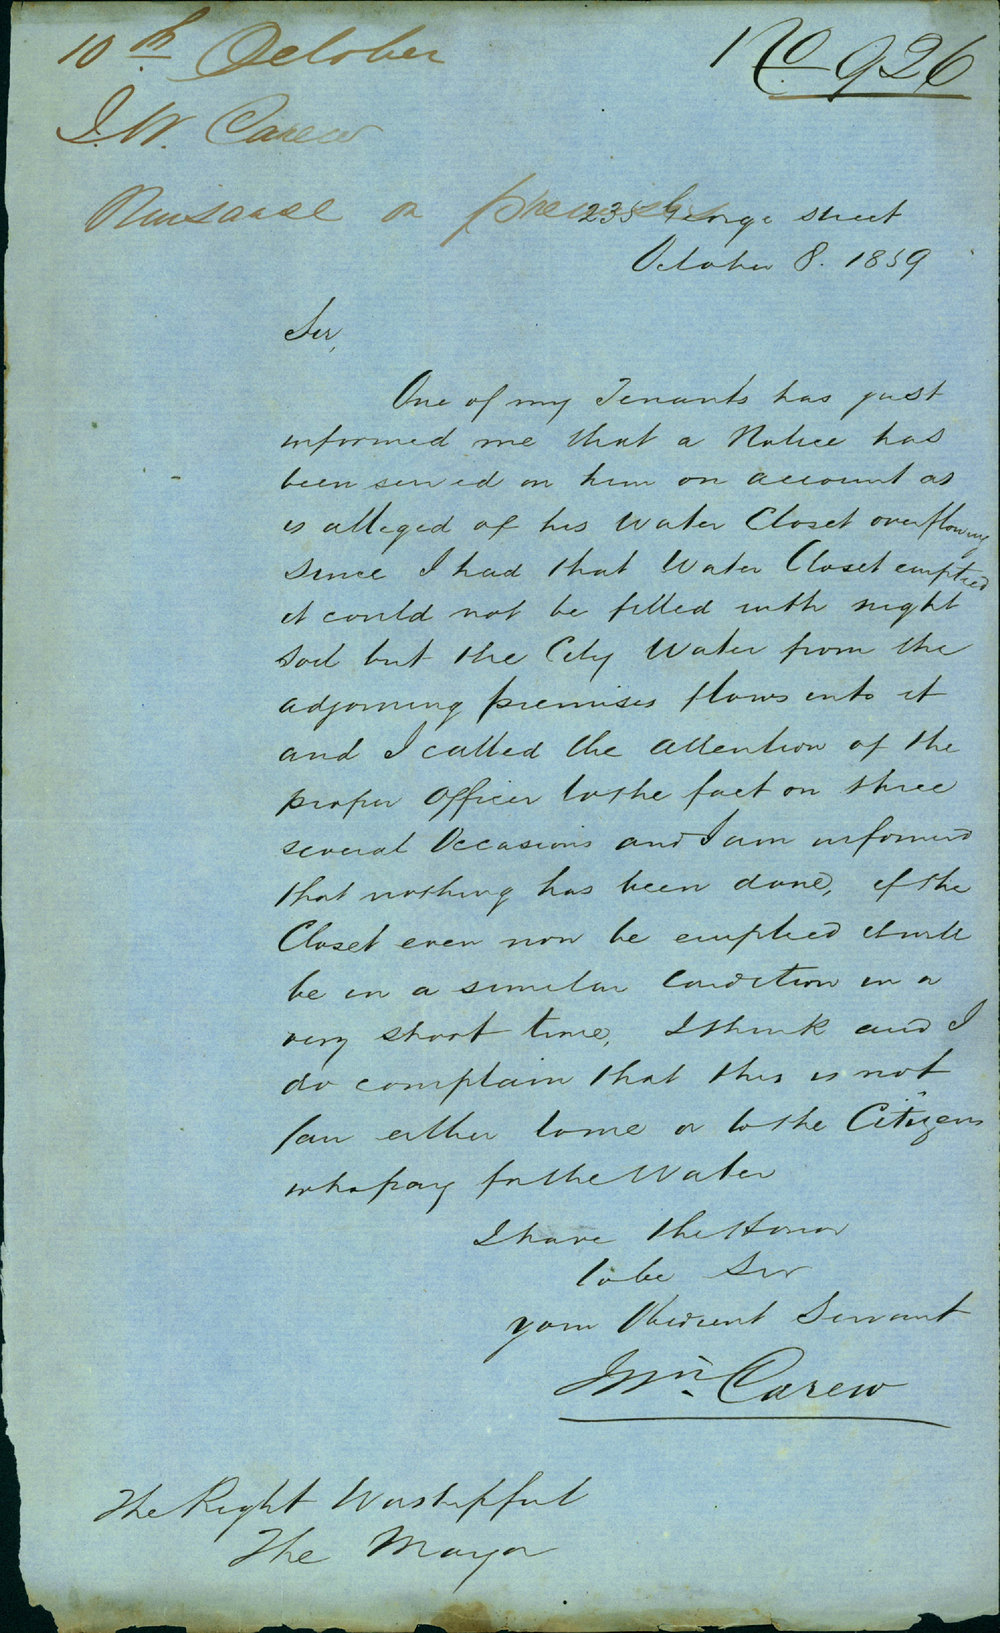 10th October
No 926
J. W. Carew
Nuisance on premises
235 George Street
October 8. 1859
Sir,
One of my Tenants has just
informed me that a Notice has
been served on him on account as
is alleged of his Water Closet overflowing
since I had that Water Closet emptied
it could not be filled with night
soil but the City Water from the
adjoining premises flows into it
and I called the attention of the
proper Officer to the fact on three
several Occasions and I am informed
that nothing has been done, if the
Closet even now be emptied it will
be in a similar condition in a
very short time, I think and I
do complain that this is not
fair either to me or to the Citizens
who pay for the Water
I have the Honor
to be Sir
your Obedient Servant
J Wm. Carew
The Right Worshipful
The Mayor